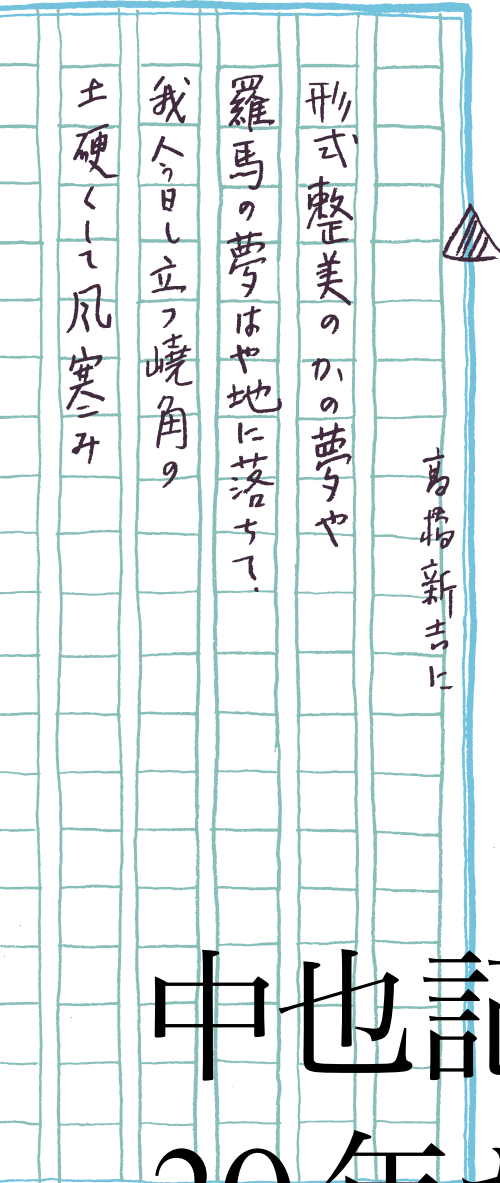 高橋新吉に
形式整美のかの夢や
羅馬の夢はや地に落ちて.
我今日し立つ嶢角の
土硬くして風寒み
中也記
20年